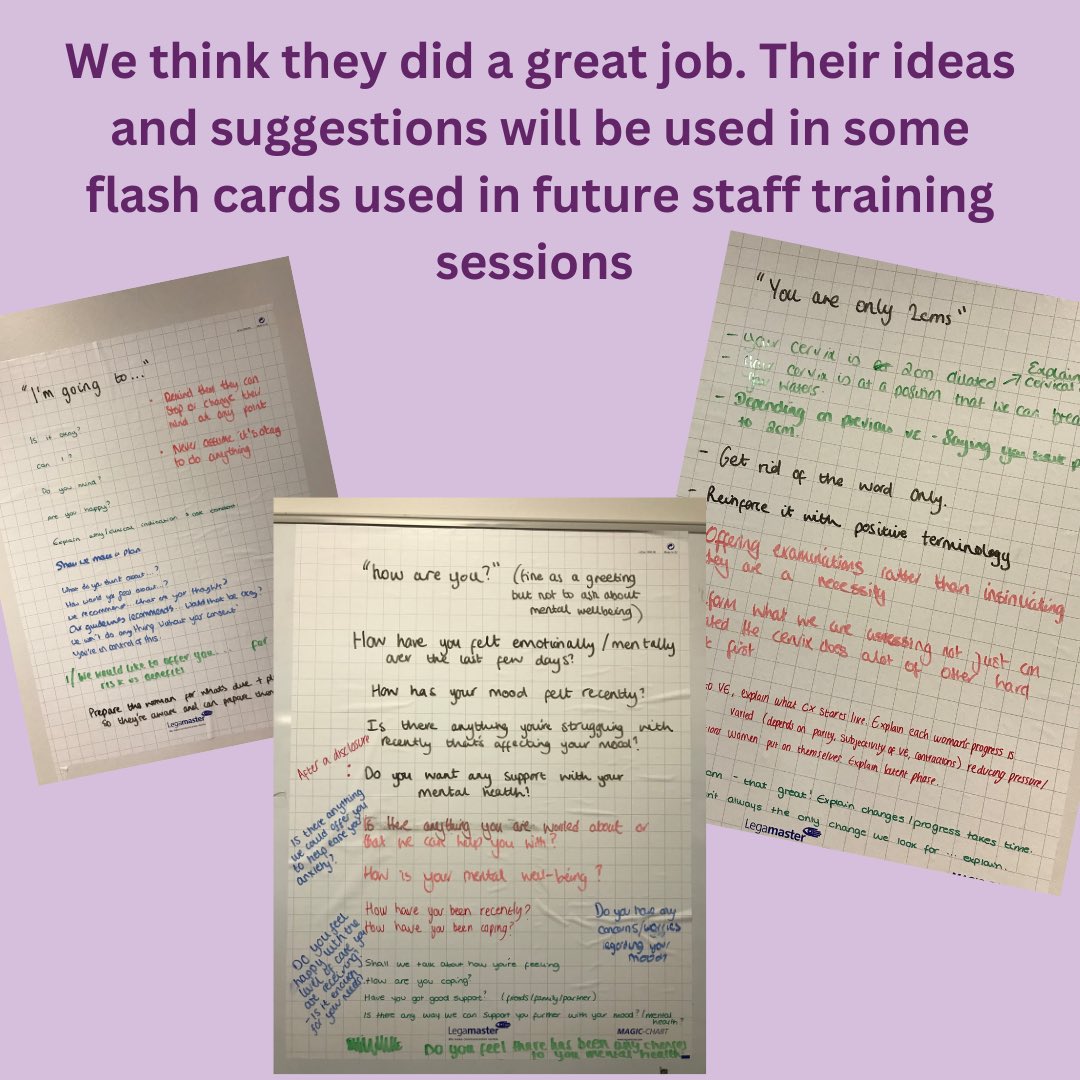 We think they did a great job. Their ideas
and suggestions will be used in some
flash cards used in future staff training
sessions
"I'm going to..."
Is it okay?
can I?
Do you mind?
are you happy?
Explain why/clinical indication & ask consent.
• Remind them they can
stop or change their
mind at any point
• Never assume it's okay
to do anything
Shall we make a plan
What do you think about...?
How would you feel about...?
we recommend. what are your thoughts?
Our guidelines recommends. Would that be okay?
we won't do anything without your consent.
You're in control of this.
I/We would like to offer you... for
risk vs benefits
Prepare the woman for what's due +
so they're aware and can prepare
Legamaster
"how are you?" (fine as a greeting
but not to ask about
mental wellbeing)
How have you felt emotionally/mentally
over the last few days?
How has your mood felt recently?
Is there anything you're struggling with
recently that's affecting your mood?
After a disclosure
:
Do you want any support with your
mental health?
Is there anything
we could offer you
to help ease your
anxiety?
Is there anything you are worried about or
that we can help you with?
How is your mental well-being?
How have you been recently?
How have you been coping?
Do you have any
concerns/worries
regarding your
mood?
Do you feel
happy with the
level of care you
are receiving?
- Is it enough
for your needs?
Shall we talk about how you're feeling
How are you coping?
Have you got good support? (friends/family/partner)
Is there any way we can support you further with your mood?/mental
health?
Legamaster
MAGIC-CHART
Do you feel there has been any changes
to you mental health
"You are only 2cms"
- your cervix is 2cm dilated → Explain
cervical
- your cervix is at a position that we can break
your waters.
- Depending on previous VE - Saying you have
to 2cm.
- Get rid of the word only.
- Reinforce it with positive terminology
Offering examinations rather than insinuating
they are a necessity
form what we are assessing not just cm
the cervix does a lot of other hard
first
VE, explain what cx starts like. Explain each woman's progress is
varied (depends on parity, subjectivity of VE, contractions) reducing pressure/
women put on themselves. Explain latent phase.
- that great! Explain changes/progress takes time.
always the only change we look for ... explain.
Legamaster